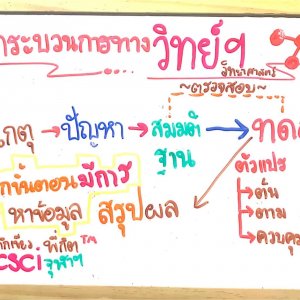 กระบวนการทางวิทย์ฯ
วิทยาศาสตร์
~ตรวจสอบ~
เกตุ → ปัญหา → สมมติฐาน → ทด
ตัวแปร
ต้น
ตาม
ควบคุม
กขั้นตอนมีการ
หาข้อมูล สรุปผล
พี่กิต™
CSCi จุฬาฯ